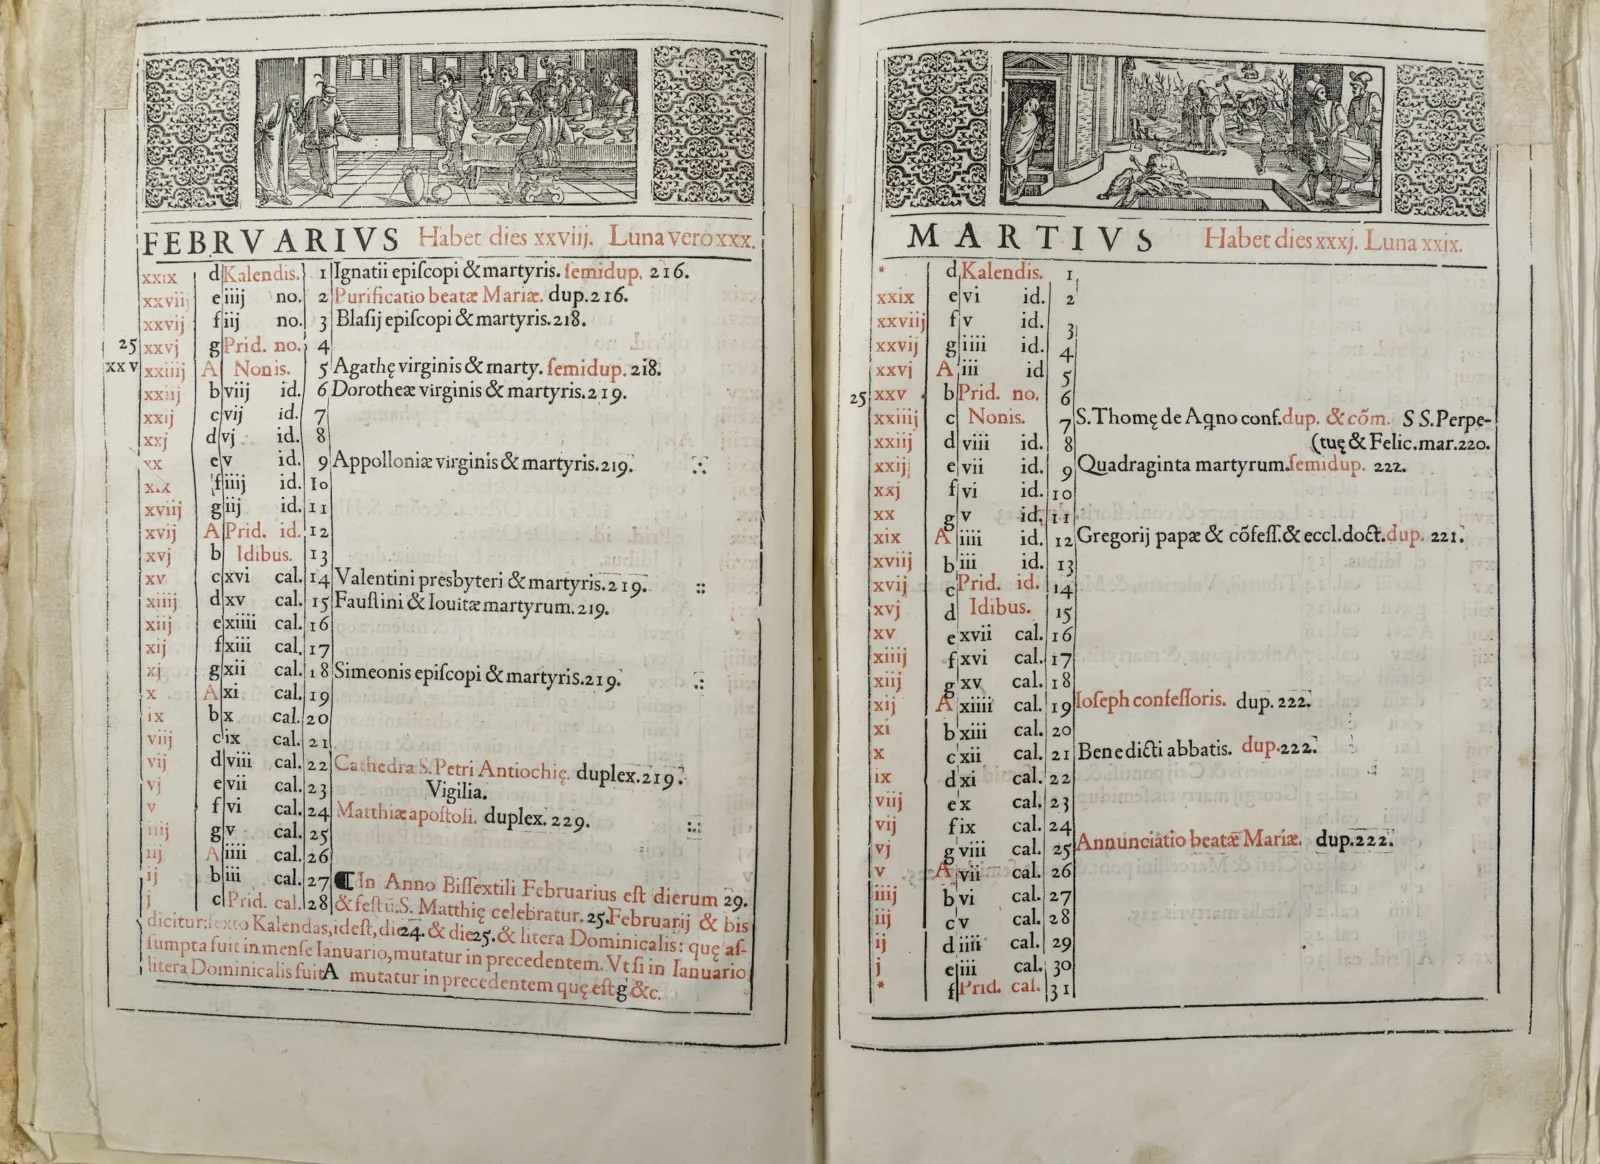 FEBRVARIVS Habet dies xxviij. Luna vero xxx.
xxix d Kalendis. 1 Ignatii epiſcopi & martyris. ſemidup. 216.
xxviij e iiij no. 2 Purificatio beatæ Mariæ. dup. 216.
xxvij f iij no. 3 Blaſij epiſcopi & martyris. 218.
25 xxvj g Prid. no. 4
xxv xxiiij A Nonis. 5 Agathę virginis & marty. ſemidup. 218.
xxiij b viij id. 6 Dorotheæ virginis & martyris. 219.
xxij c vij id. 7
xxj d vj id. 8
xx e v id. 9 Appolloniæ virginis & martyris. 219.
xix f iiij id. 10
xviij g iij id. 11
xvij A Prid. id. 12
xvj b Idibus. 13
xv c xvi cal. 14 Valentini presbyteri & martyris. 219.
xiiij d xv cal. 15 Fauſtini & Iouitæ martyrum. 219.
xiij e xiiii cal. 16
xij f xiii cal. 17
xj g xii cal. 18 Simeonis epiſcopi & martyris. 219.
x A xi cal. 19
ix b x cal. 20
viij c ix cal. 21
vij d viii cal. 22 Cathedra S. Petri Antiochię. duplex. 219.
vj e vii cal. 23 Vigilia.
v f vi cal. 24 Matthiæ apoſtoli. duplex. 229.
iiij g v cal. 25
iij A iiii cal. 26
ij b iii cal. 27 ¶ In Anno Biſſextili Februarius eſt dierum 29.
j c Prid. cal. 28 & feſtū S. Matthię celebratur. 25. Februarij & bis
dicitur: ſexto Kalendas, ideſt, die 24. & die 25. & litera Dominicalis: quę aſ-
ſumpta fuit in menſe Ianuario, mutatur in precedentem. Vt ſi in Ianuario
litera Dominicalis fuit A mutatur in precedentem quę eſt g &c.
MARTIVS Habet dies xxxj. Luna xxix.
* d Kalendis. 1
xxix e vi id. 2
xxviij f v id. 3
xxvij g iiii id. 4
xxvj A iii id 5
25 xxv b Prid. no. 6
xxiiij c Nonis. 7 S. Thomę de Aqno conf. dup. & cõm. S S. Perpe-
xxiij d viii id. 8 (tuę & Felic. mar. 220.
xxij e vii id. 9 Quadraginta martyrum. ſemidup. 222.
xxj f vi id. 10
xx g v id. 11
xix A iiii id. 12 Gregorij papæ & cõfeſſ. & eccl. doct. dup. 221.
xviij b iii id. 13
xvij c Prid. id. 14
xvj d Idibus. 15
xv e xvii cal. 16
xiiij f xvi cal. 17
xiij g xv cal. 18
xij A xiiii cal. 19 Ioſeph confeſſoris. dup. 222.
xi b xiii cal. 20
x c xii cal. 21 Benedicti abbatis. dup. 222.
ix d xi cal. 22
viij e x cal. 23
vij f ix cal. 24
vj g viii cal. 25 Annunciatio beatæ Mariæ. dup. 222.
v A vii cal. 26
iiij b vi cal. 27
iij c v cal. 28
ij d iiii cal. 29
j e iii cal. 30
* f Prid. cal. 31